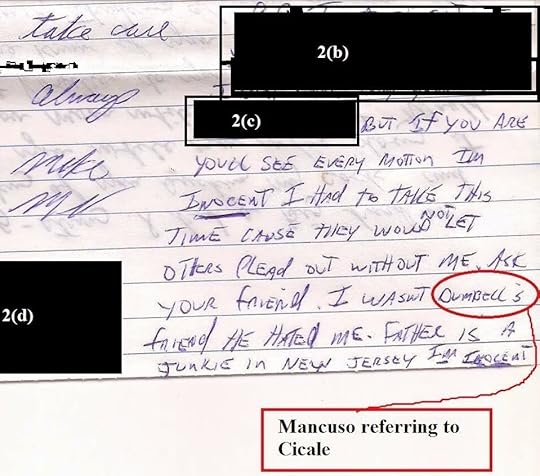 take care
2(b)
always
2(c)
BUT IF YOU ARE
Mike
YOULL SEE EVERY MOTION IM
INOCENT I HAD TO TAKE THIS
TIME CAUSE THEY WOULD NOT LET
OTHERS PLEAD OUT WITHOUT ME. ASK
YOUR FRIEND. I WASNT DUMBELL'S
2(d)
FRIEND HE HATED ME. FATHER IS A
JUNKIE IN NEW JERSEY IM INOCENT
Mancuso referring to
Cicale